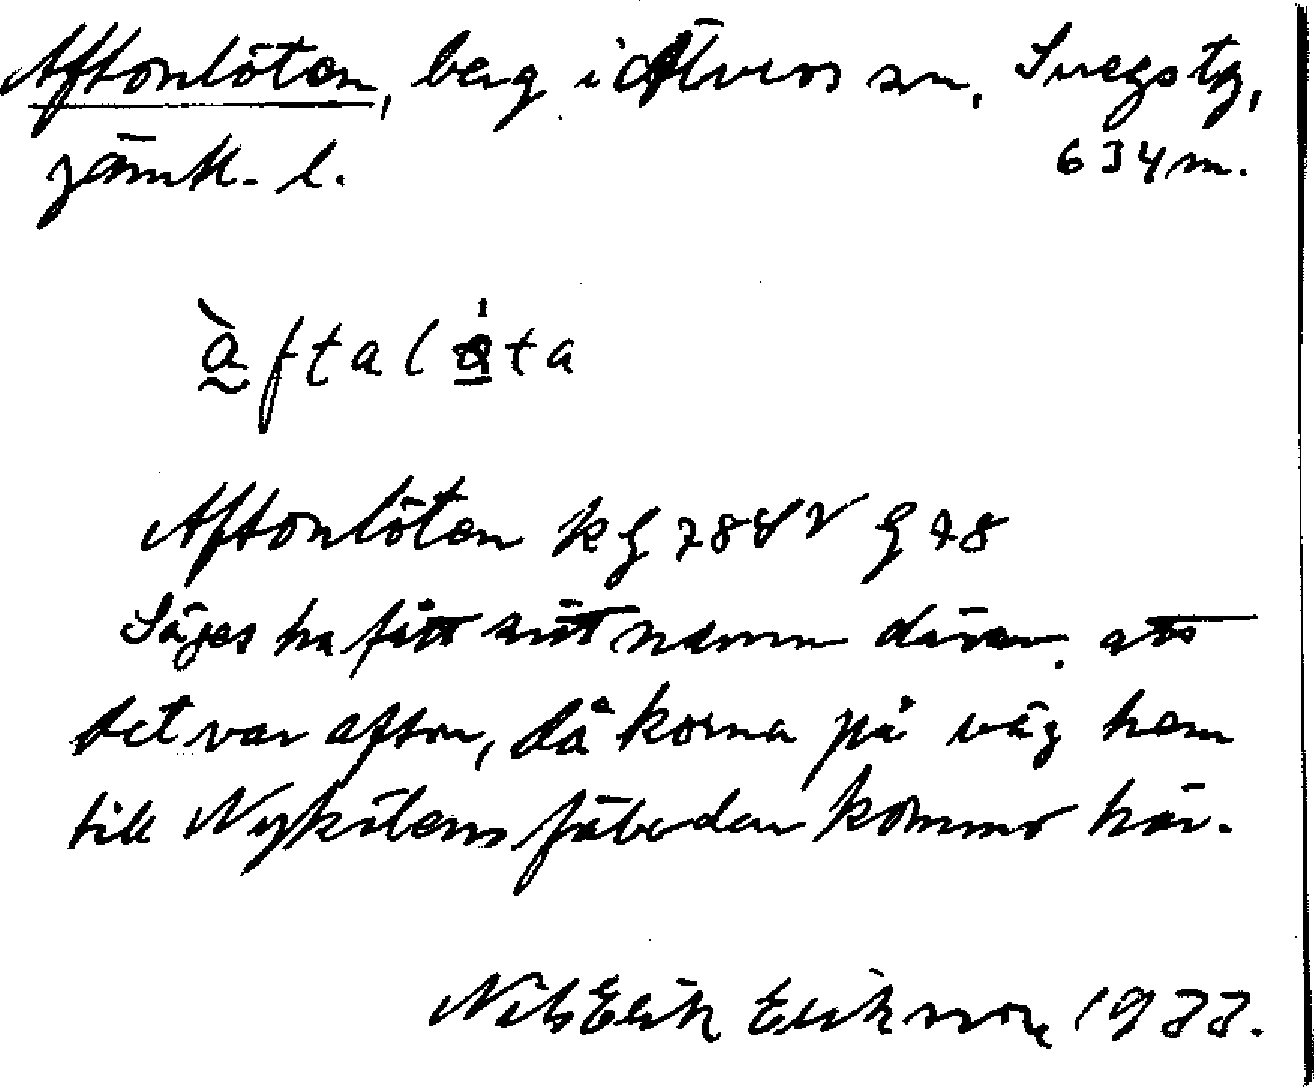 Aftonlöten, berg i Älvros sn, Svegs tg,
Jämtl. l. 634 m.
àftalǻta
Aftonlöten kg
Säges ha fått sitt namn därav, att
det var afton, då korna på väg hem
till Nykölens fäbodar kommo här.
Nils Erik Erikson, 1933.